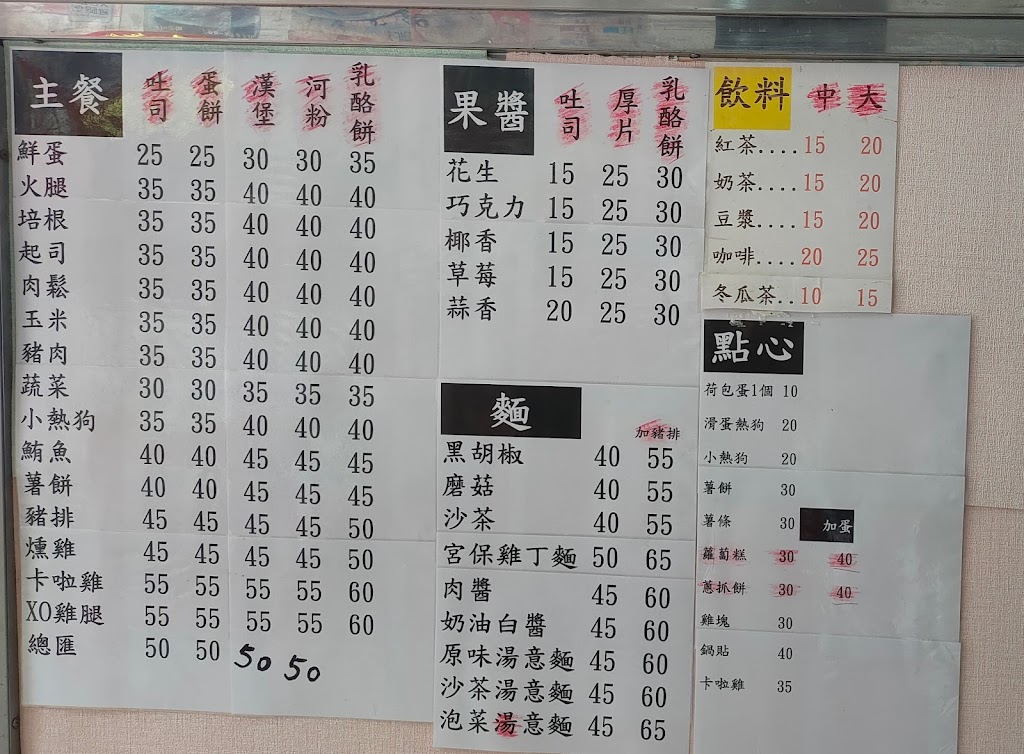 主餐 吐司 蛋餅 漢堡 河粉 乳酪餅
鮮蛋 25 25 30 30 35
火腿 35 35 40 40 40
培根 35 35 40 40 40
起司 35 35 40 40 40
肉鬆 35 35 40 40 40
玉米 35 35 40 40 40
豬肉 35 35 40 40 40
蔬菜 30 30 35 35 35
小熱狗 35 35 40 40 40
鮪魚 40 40 45 45 45
薯餅 40 40 45 45 45
豬排 45 45 45 45 50
燻雞 45 45 45 45 50
卡啦雞 55 55 55 55 60
XO雞腿 55 55 55 55 60
總匯 50 50 50 50
果醬 吐司 厚片 乳酪餅
花生 15 25 30
巧克力 15 25 30
椰香 15 25 30
草莓 15 25 30
蒜香 20 25 30
麵 加豬排
黑胡椒 40 55
磨菇 40 55
沙茶 40 55
宮保雞丁麵 50 65
肉醬 45 60
奶油白醬 45 60
原味湯意麵 45 60
沙茶湯意麵 45 60
泡菜湯意麵 45 65
飲料 中 大
紅茶....15 20
奶茶....15 20
豆漿....15 20
咖啡....20 25
冬瓜茶..10 15
點心
荷包蛋1個 10
滑蛋熱狗 20
小熱狗 20
薯餅 30
薯條 30 加蛋
蘿蔔糕 30 40
蔥抓餅 30 40
雞塊 30
鍋貼 40
卡啦雞 35